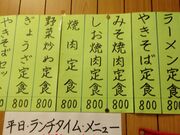 ラーメン定食 800
やきそば定食 800
みそ焼肉定食 800
しお焼肉定食 800
焼肉定食 800
野菜炒め定食 800
ぎょうざ定食 800
やきそばセット
平日・ランチタイム・メニュー